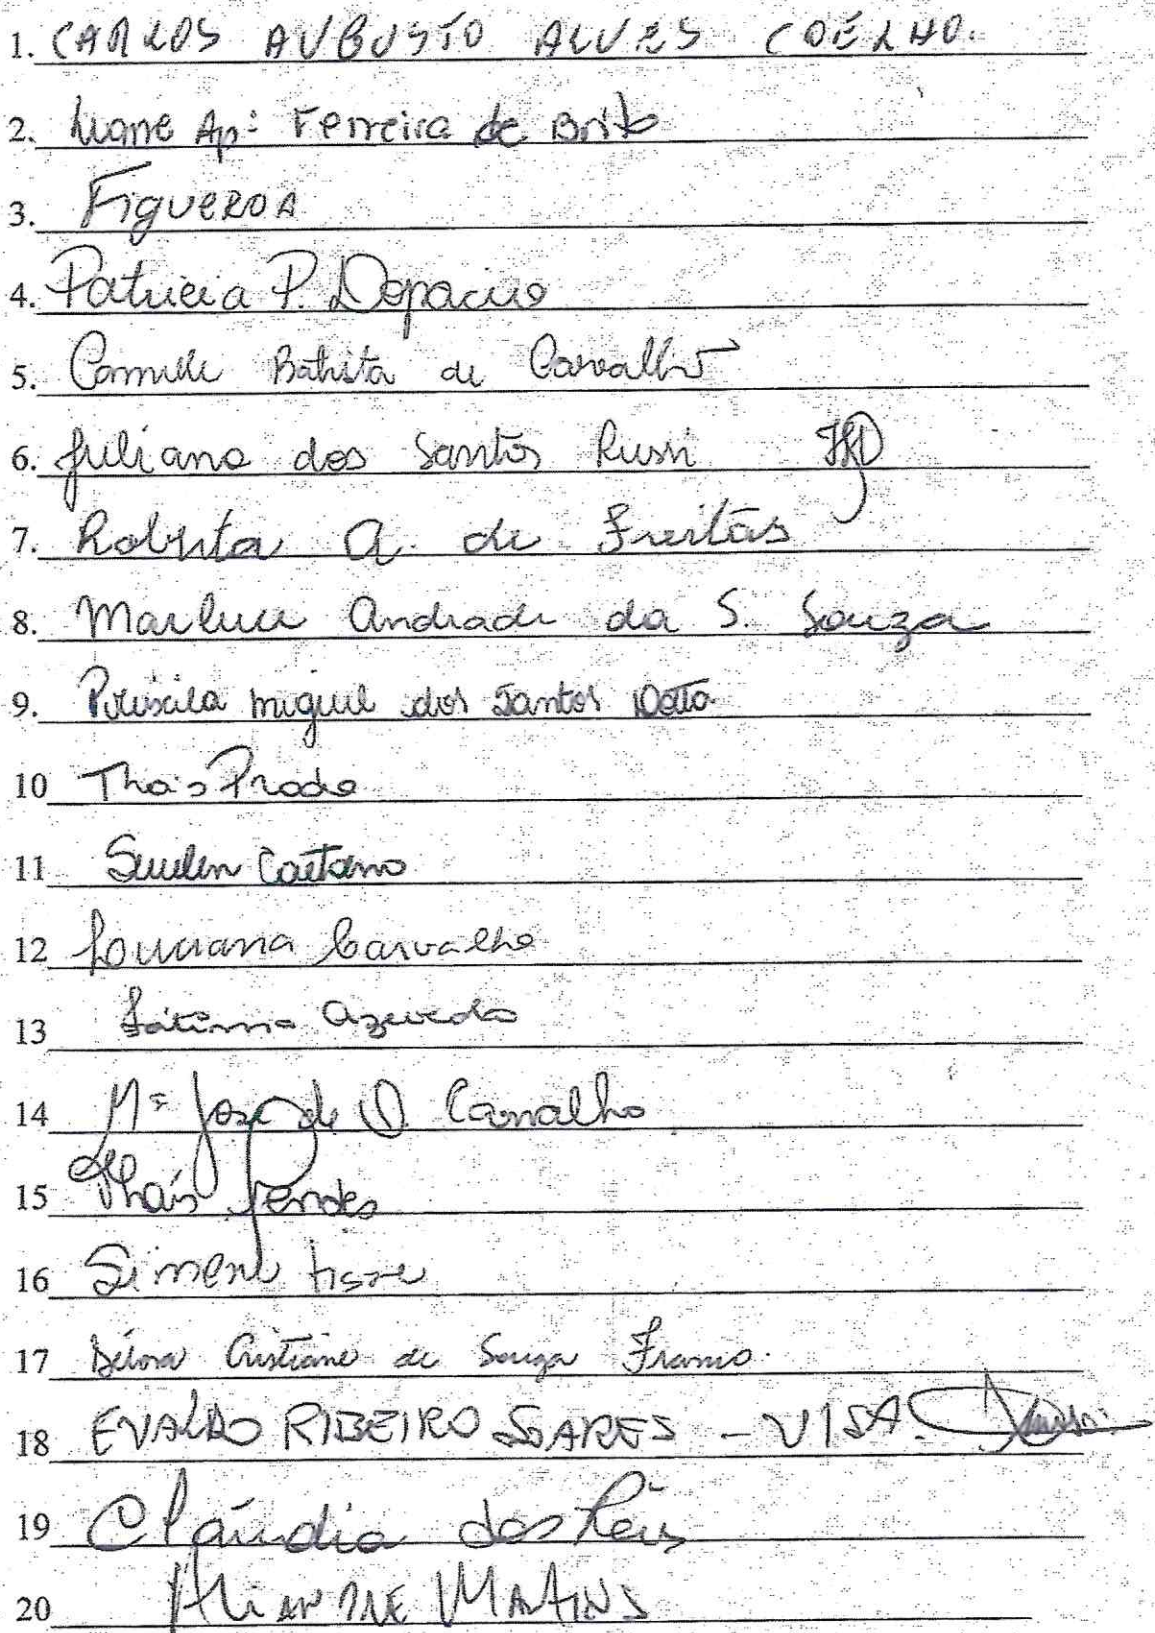 1. CARLOS AUGUSTO ALVES COELHO.
2. Ap: Ferreira de Brito
3. FigueROA
4. Patricia P.
5. Camille Batista de Carvalho
6. Juliana dos Santos Russi
7. Roberta A. de Freitas
8. Marluce Andrade da S. Souza
9. Priscila Miguel dos Santos
10 Thais Prado
11 Suelen Caetano
12 Luciana Carvalho
13 Fátima Azevedo
14 Mª José de O. Carvalho
15 Thaís
16 Simeni
17 Débora Cristiane de Souza Franco.
18 EVALDO RIBEIRO SOARES - VISA.
19 Cláudia dos Réis
20 MARTINS